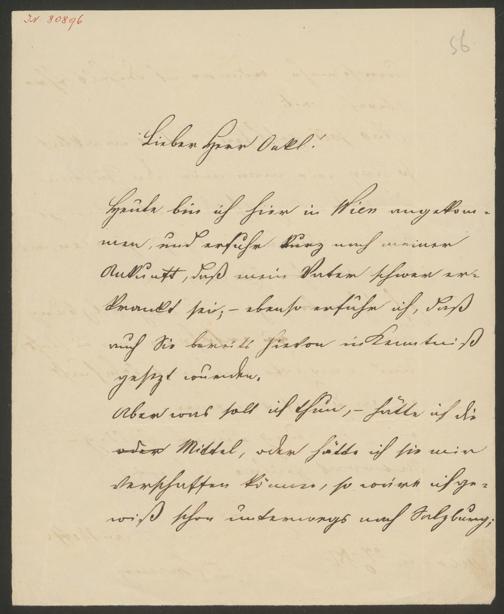 IN 80896
56
Lieber Herr Onkl!
Heute bin ich hier in Wien angekom-
men, und erfuhr kurz nach meiner
Ankunft, daß mein Vater schwer er-
krankt sei; – ebenso erfuhr ich, daß
auch Sie bereits hievon in Kenntniß
gesezt wurden.
Aber was soll ich thun, – hätte ich die
oder Mittel, oder hätte ich sie mir
verschaffen können, so wäre ich ge-
wiß schon unterwegs nach Salzburg;